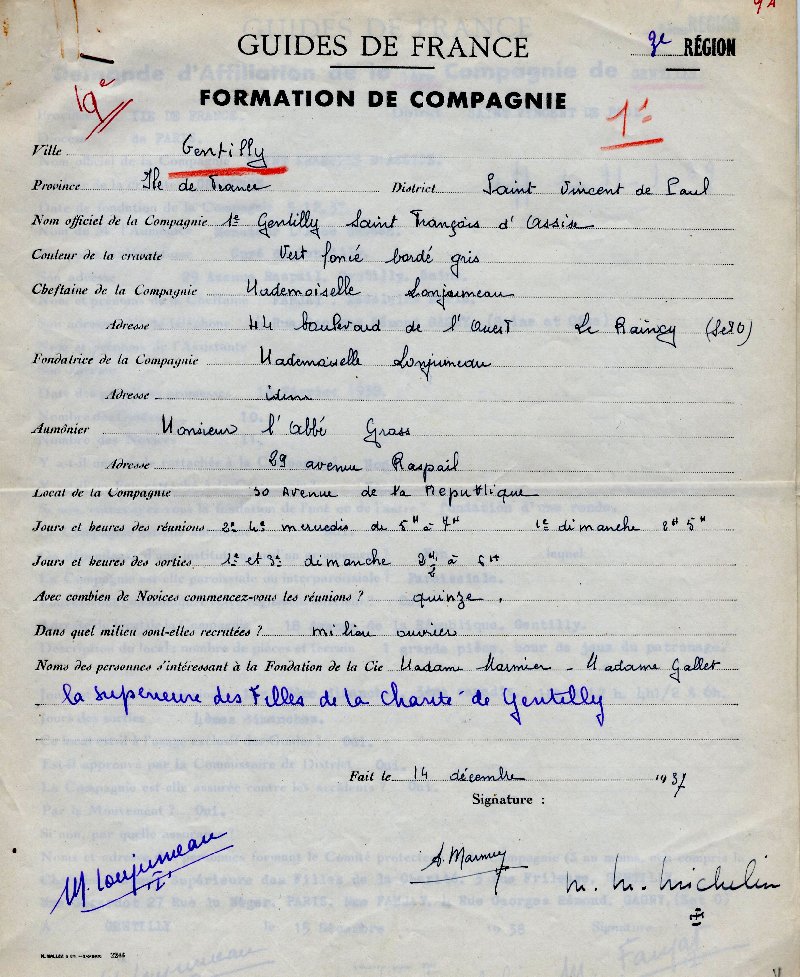 GUIDES DE FRANCE
9e RÉGION
FORMATION DE COMPAGNIE
19e
1e
Ville Gentilly
Province Ile de France District Saint Vincent de Paul
Nom officiel de la Compagnie 1e Gentilly Saint François d'Assise
Couleur de la cravate Vert foncé bordé gris
Cheftaine de la Compagnie Mademoiselle Lonjumeau
Adresse 44 boulevard de l'Ouest Le Raincy (Set O)
Fondatrice de la Compagnie Mademoiselle Lonjumeau
Adresse idem
Aumônier Monsieur l'Abbé Grass
Adresse 29 avenue Raspail
Local de la Compagnie 30 Avenue de la République
Jours et heures des réunions 2e 4e mercredis de 5H à 7H 1e dimanche 2H 5H
Jours et heures des sorties 1e et 3e dimanche 2H 1/2 à 6H
Avec combien de Novices commencez-vous les réunions ? quinze.
Dans quel milieu sont-elles recrutées ? milieu ouvrier
Noms des personnes s'intéressant à la Fondation de la Cie Madame Marmier - Madame Gallet
la supérieure des Filles de la Charité de Gentilly
Fait le 14 décembre 1937
Signature :
M. Lonjumeau
M. M. Michelin
2246